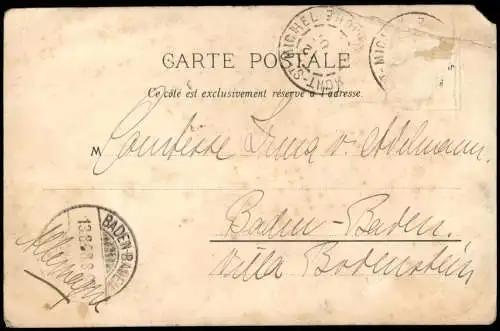 CARTE POSTALE
Ce côté est exclusivement réservé à l'adresse.
M Comtesse Irma v. Adelmann.
Baden-Baden.
Villa Bodenstein
Allemagne
BADEN-BADEN
13.8.
MONT-ST-MICHEL